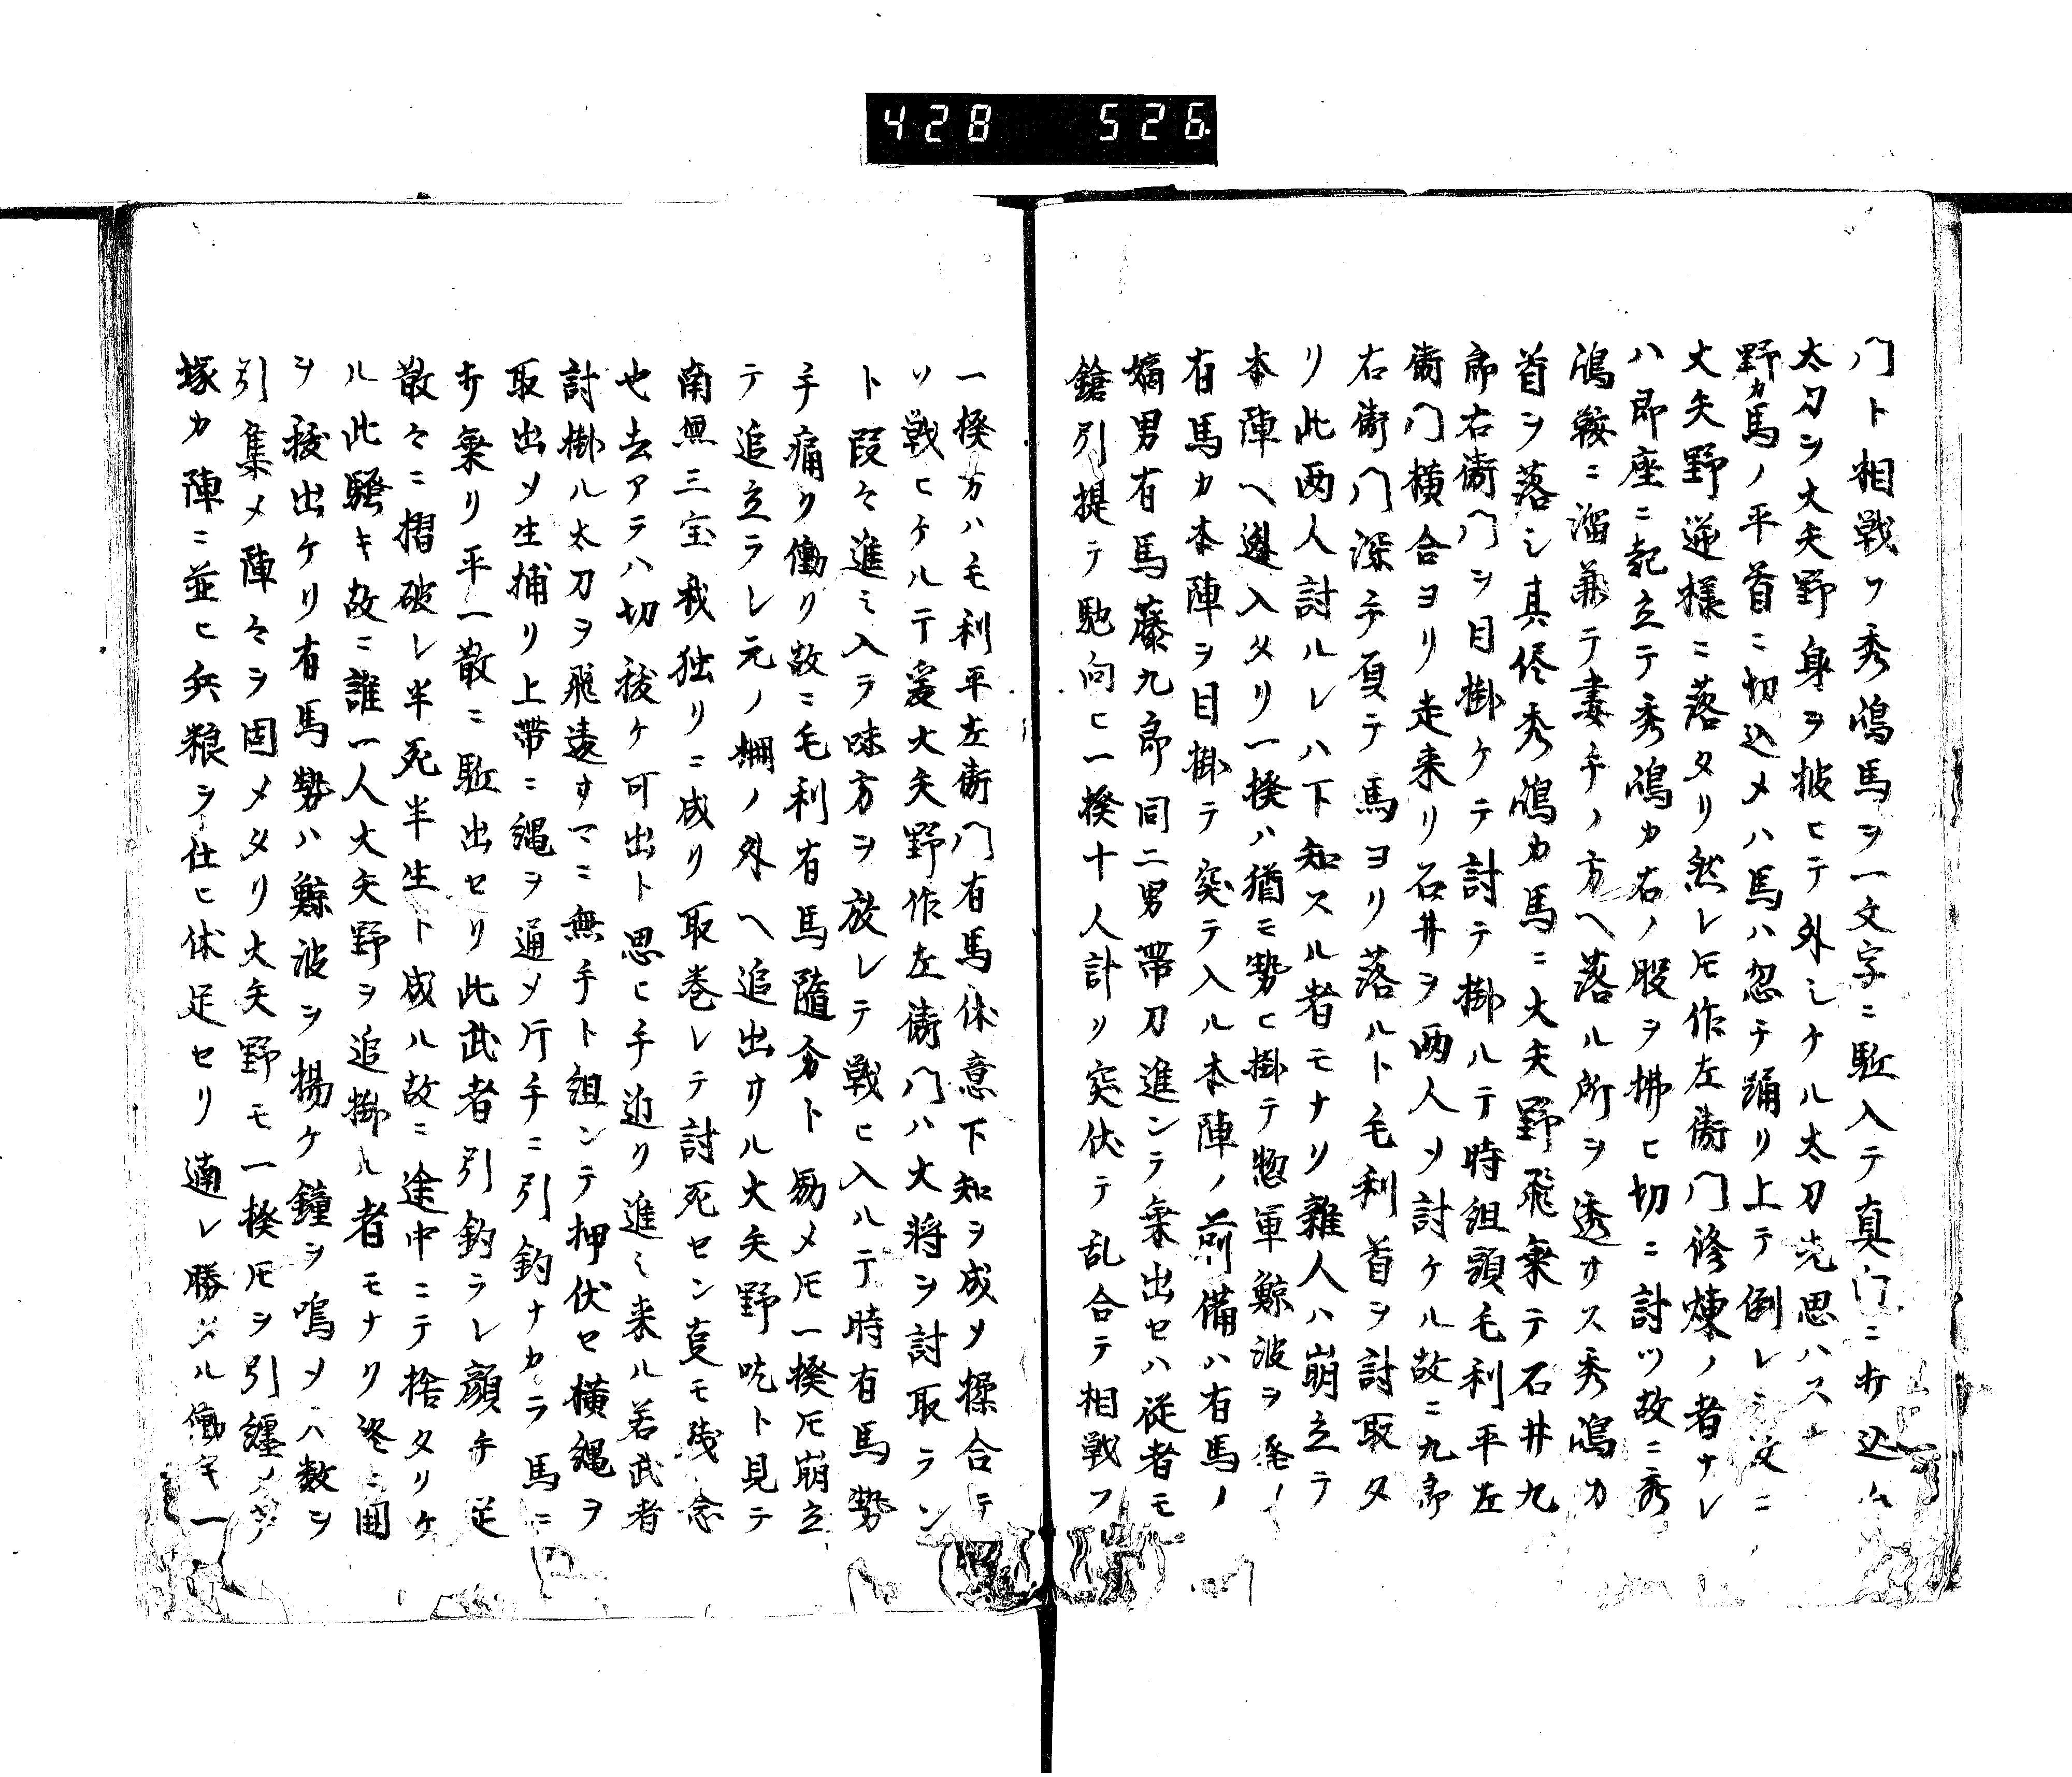 428 526
門ト相戦フ秀鴻馬ヲ一文字ニ駈入テ真門ニ切込ム
太刀ヲ大矢野身ヲ披ヒテ外シケル太刀先思ハスモ
野カ馬ノ平首ニ切込メハ馬ハ忽チ踊リ上テ倒レシ故ニ
大矢野逆様ニ落タリ然レ𪜈作左衛門修煉ノ者ナレ
ハ即座ニ起立テ秀鴻カ右ノ股ヲ拂ヒ切ニ討ツ故ニ秀
鴻鞍ニ溜兼テ妻手ノ方ヘ落ル所ヲ透サス秀鴻カ
首ヲ落シ其侭秀鴻カ馬ニ大矢野飛乗テ石井九
郎右衛門ヲ目掛ケテ討テ掛ルテ時組頭毛利平左
衛門横合ヨリ走来リ石井ヲ両人〆討ケル故ニ九郎
右衛門深手負テ馬ヨリ落ルト毛利首ヲ討取タ
リ此両人討ルレハ下知スル者モナリ雑人ハ崩立テ
本陣ヘ迯入タリ一揆ハ猶モ勢ヒ掛テ惣軍鯨波ヲ発ノ
有馬カ本陣ヲ目掛テ突テ入ル本陣ノ前備ハ有馬ノ
嫡男有馬藤九郎同二男帯刀進ンテ乗出セハ従者モ
鎗引提テ馳向ヒ一揆十人計リ突伏テ乱合テ相戦フ
一揆方ハ毛利平左衛門有馬休意下知ヲ成〆揉合テ
ソ戦ヒケルテ爰大矢野作左衛門ハ大将ヲ討取ラン
ト段々進ミ入ラ味方ヲ放レテ戦ヒ入ルテ時有馬勢
手痛ク働リ故ニ毛利有馬随分ト励メ𪜈一揆𪜈崩立
テ追立ラレ元ノ柵ノ外ヘ追出サル大矢野吃ト見テ
南無三宝我独リニ成リ取巻レテ討死セン㕝モ残念
也去アラハ切抜ケ可出ト思ヒ手近ク進ミ来ル若武者
討掛ル太刀ヲ飛違すマニ無手ト組ンテ押伏セ横縄ヲ
取出〆生捕リ上帯ニ縄ヲ通〆片手ニ引釣ナカラ馬ニ
打乗リ平一散ニ駈出セリ此武者引釣ラレ顔手足
散々ニ摺破レ半死半生ト成ル故ニ途中ニテ捨タリケ
ル此騒キ故ニ誰一人大矢野ヲ追掛ル者モナリ終ニ囲
ヲ抜出ケリ有馬勢ハ鯨波ヲ揚ケ鐘ヲ鳴〆人数ヲ
引集メ陣々ヲ固メタリ大矢野モ一揆𪜈ヲ引纏メ
塚カ陣ニ並ヒ兵粮ヲ仕ヒ休足セリ遖レ勝タル働キ一